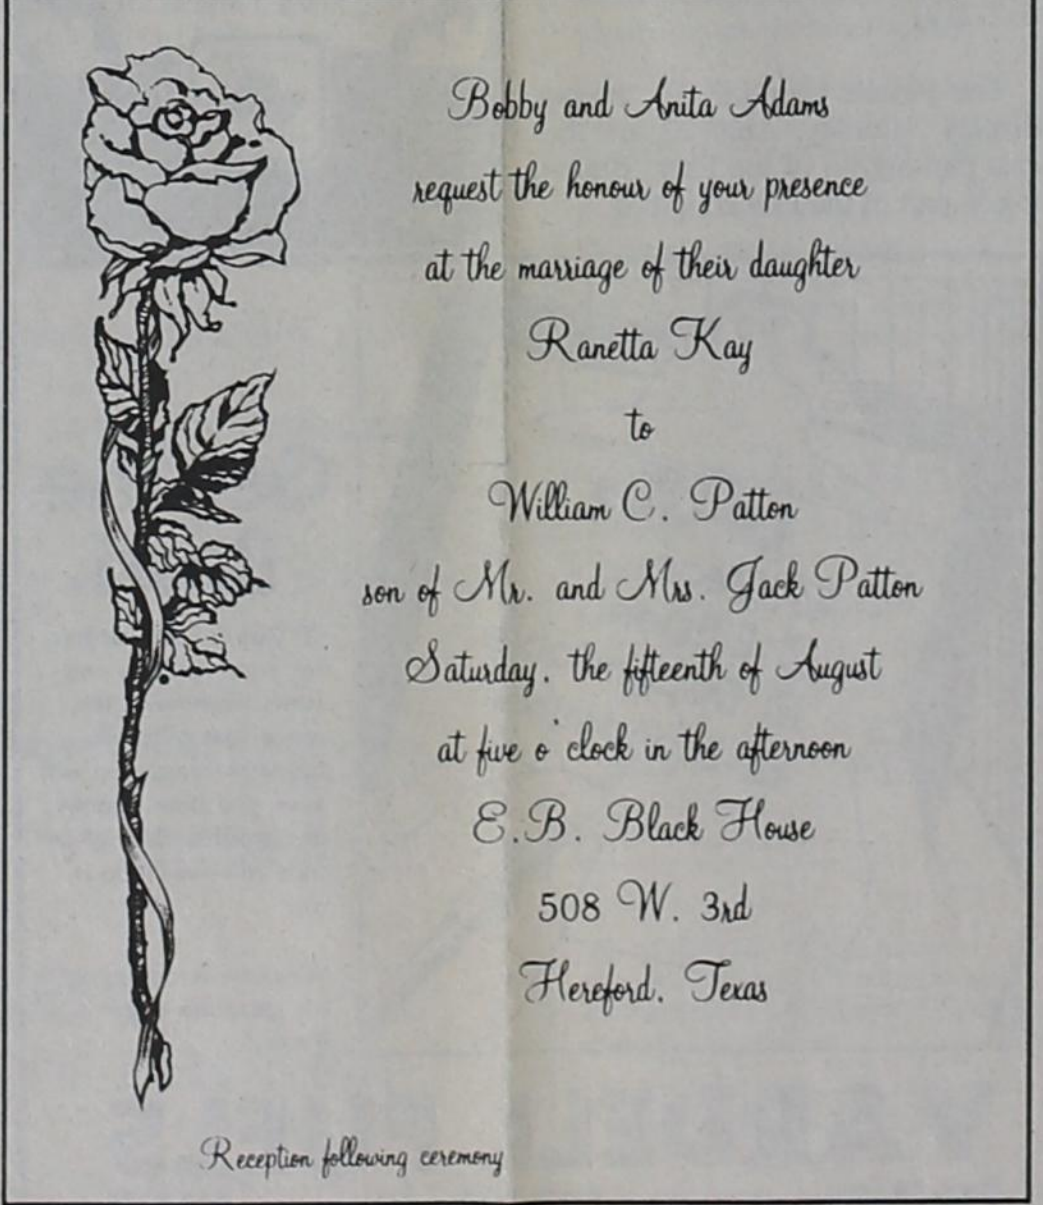 Bobby and Anita Adams
request the honour of your presence
at the marriage of their daughter
Ranetta Kay
to
William C. Patton
son of Mr. and Mrs. Jack Patton
Saturday, the fifteenth of August
at five o'clock in the afternoon
E.B. Black House
508 W. 3rd
Hereford, Texas
Reception following ceremony